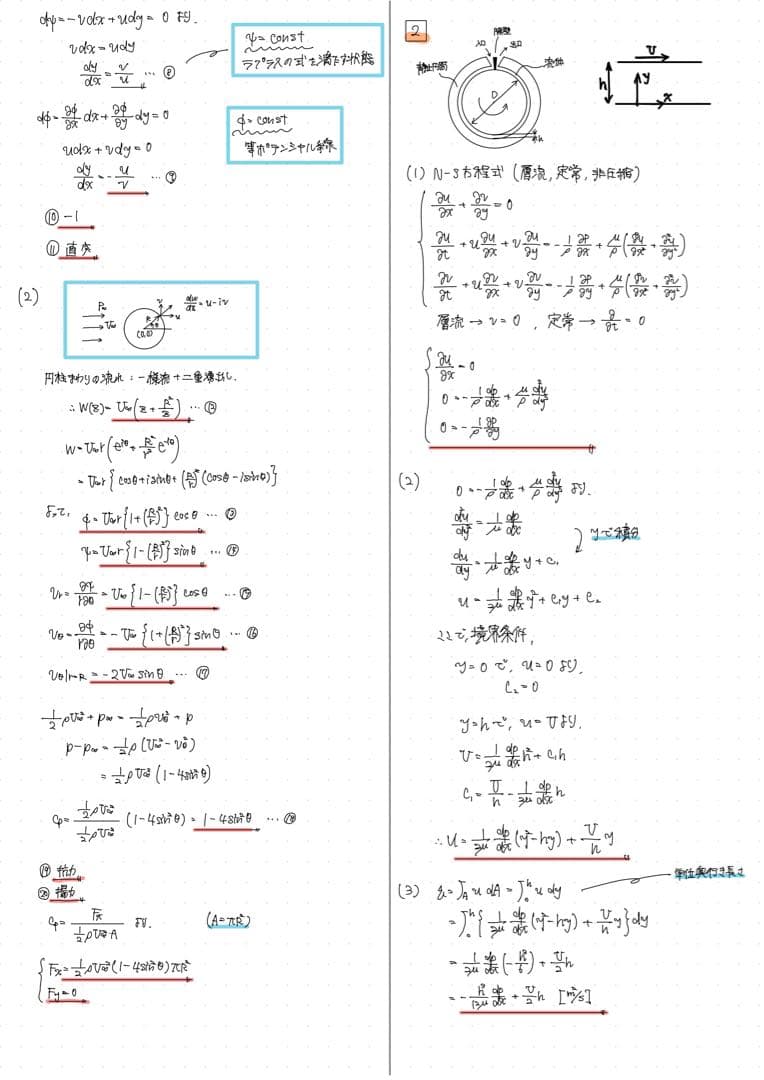 dψ = -vdx + udy = 0 より.
vdx = udy
dy/dx = v/u … ⑧
ψ = const
ラプラスの式を満たす状態
dφ = ∂φ/∂x dx + ∂φ/∂y dy = 0
udx + vdy = 0
dy/dx = -u/v … ⑨
φ = const
等ポテンシャル線
⑩ -1
⑪ 直交
(2)
P∞
U∞
R
θ
(0,0)
v
u
dw/dz = u - iv
円柱まわりの流れ : 一様流 + 二重湧出し.
∴ W(z) = U∞(z + R²/z) … ⑫
W = U∞r(e^{iθ} + R²/r² e^{-iθ})
= U∞r{cosθ + isinθ + (R/r)²(cosθ - isinθ)}
よって, φ = U∞r{1 + (R/r)²}cosθ … ⑬
ψ = U∞r{1 - (R/r)²}sinθ … ⑭
Vr = ∂ψ/r∂θ = U∞{1 - (R/r)²}cosθ … ⑮
Vθ = ∂φ/r∂θ = -U∞{1 + (R/r)²}sinθ … ⑯
Vθ|r=R = -2U∞sinθ … ⑰
1/2 ρU∞² + p∞ = 1/2 ρvθ² + p
p - p∞ = 1/2 ρ(U∞² - vθ²)
= 1/2 ρU∞²(1 - 4sin²θ)
Cp = (1/2 ρU∞²)/(1/2 ρU∞²) (1 - 4sin²θ) = 1 - 4sin²θ … ⑱
⑲ 抗力
⑳ 揚力
Cp = Fx/(1/2 ρU∞²·A) より. (A = πR²)
Fx = 1/2 ρU∞²(1 - 4sin²θ)πR²
Fy = 0
2
隔壁
入口
出口
静止円筒
流体
D
h
U
h
y
x
(1) N-S方程式 (層流, 定常, 非圧縮)
∂u/∂x + ∂v/∂y = 0
∂u/∂t + u∂u/∂x + v∂u/∂y = -1/ρ ∂p/∂x + μ/ρ(∂²u/∂x² + ∂²u/∂y²)
∂v/∂t + u∂v/∂x + v∂v/∂y = -1/ρ ∂p/∂y + μ/ρ(∂²v/∂x² + ∂²v/∂y²)
層流 → v = 0 , 定常 → ∂/∂t = 0
∂u/∂x = 0
0 = -1/ρ dp/dx + μ/ρ d²u/dy²
0 = -1/ρ ∂p/∂y
(2)
0 = -1/ρ dp/dx + μ/ρ d²u/dy² より.
d²u/dy² = 1/μ dp/dx
yで積分
du/dy = 1/μ dp/dx y + C₁
u = 1/2μ dp/dx y² + C₁y + C₂
ここで, 境界条件,
y = 0 で, u = 0 より.
C₂ = 0
y = h で, u = U より.
U = 1/2μ dp/dx h² + C₁h
C₁ = U/h - 1/2μ dp/dx h
∴ u = 1/2μ dp/dx (y² - hy) + U/h y
(3) q = ∫_A u dA = ∫₀ʰ u dy
単位奥行き長さ
= ∫₀ʰ{1/2μ dp/dx (y² - hy) + U/h y}dy
= 1/2μ dp/dx (-h³/6) + U/2 h
= -h³/12μ dp/dx + U/2 h [m²/s]